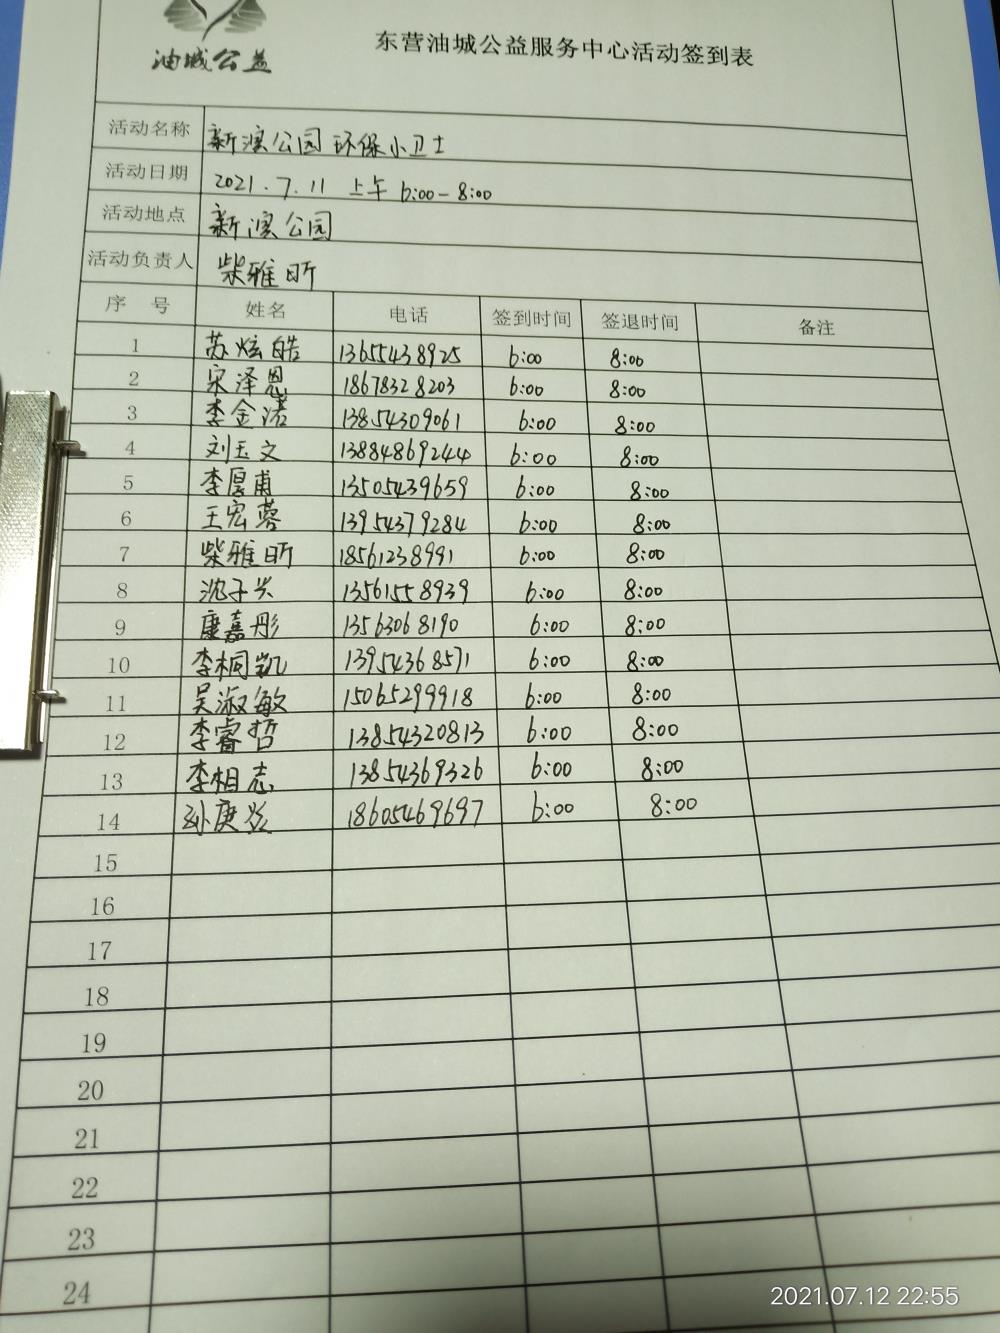 油城公益
东营油城公益服务中心活动签到表
活动名称 新滨公园 环保小卫士
活动日期 2021.7.11 上午 6:00-8:00
活动地点 新滨公园
活动负责人 柴雅昕
序号 姓名 电话 签到时间 签退时间 备注
1 苏炫皓 13655438925 6:00 8:00
2 宋泽恩 18678328203 6:00 8:00
3 李金诺 13854309061 6:00 8:00
4 刘玉文 13884869244 6:00 8:00
5 李厚甫 13505439659 6:00 8:00
6 王宏蓉 13954379284 6:00 8:00
7 柴雅昕 18561238991 6:00 8:00
8 沈子兴 13561558939 6:00 8:00
9 康嘉彤 13563068190 6:00 8:00
10 李桐凯 13954368571 6:00 8:00
11 吴淑敏 15065299918 6:00 8:00
12 李睿哲 13854320813 6:00 8:00
13 李相志 13854369326 6:00 8:00
14 孙庚 18605469697 6:00 8:00
15
16
17
18
19
20
21
22
23
24
2021.07.12 22:55